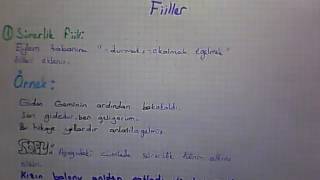 Fiiller
① Sürerlik fiili:
Eylem tabanına "-durmak, -akalmak, egelmek"
ekleri eklenir.
Örnek:
Giden Geminin ardından bakakaldı.
Sen gidedur, ben geliyorum.
Bu hikaye yıllardır anlatılagelmiş.
SORU: Aşağıdaki cümlede sürerlik fiilinin altını
çizin.
Kızın balonu